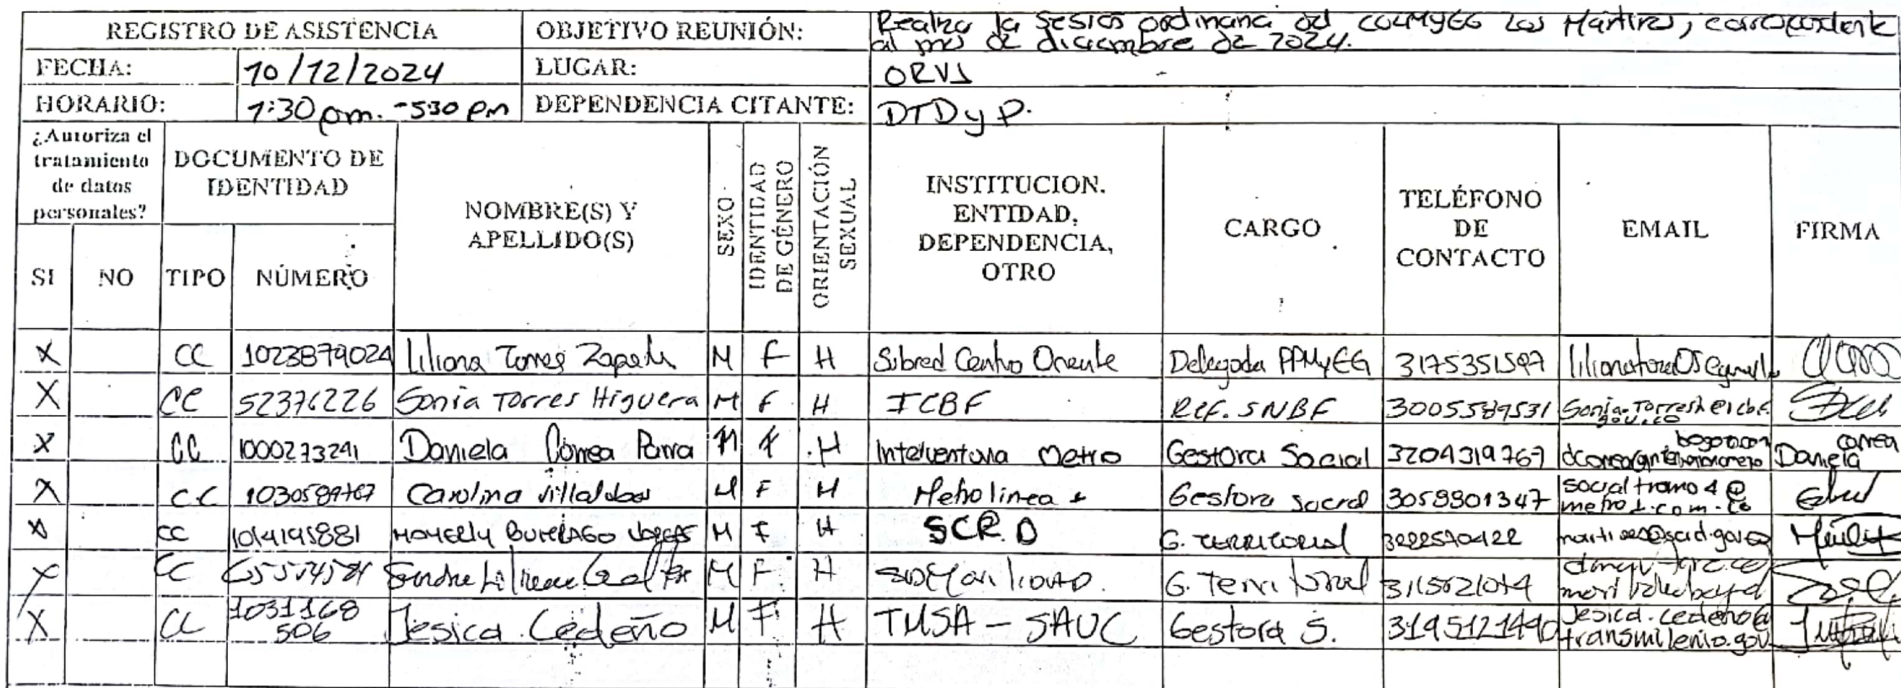 REGISTRO DE ASISTENCIA OBJETIVO REUNIÓN: Realiza la sesion ordinaria del COLMYEG Los Mártires, correspondiente
al mes de diciembre de 2024.
FECHA: 10/12/2024 LUGAR: ORVI
HORARIO: 1:30 pm. - 530 pm DEPENDENCIA CITANTE: DTDyP.
¿Autoriza el
tratamiento
de datos
personales?
DOCUMENTO DE
IDENTIDAD
NOMBRE(S) Y
APELLIDO(S)
SEXO
IDENTIDAD
DE GÉNERO
ORIENTACIÓN
SEXUAL
INSTITUCION.
ENTIDAD,
DEPENDENCIA,
OTRO
CARGO
TELÉFONO
DE
CONTACTO
EMAIL
FIRMA
SI NO TIPO NÚMERO
X CC 1023879024 Liliana Torres Zapata M F H Subred Centro Oriente Delegada PPMyEG 3175351597
X CC 52376226 Sonia Torres Higuera M F H ICBF Ref. SNBF 3005589531 Sonia.Torresh@icbf.
gov.co
X CC 1000273241 Daniela Correa Parra M F H Interventoria Metro Gestora Social 3204319769 Daniela Correa
X CC 1030589767 Carolina Villalobos M F H Metro linea 1 Gestora social 3058801347 socialtramo4@
metro1.com.co
X CC 1014195881 M F H SCRD G. TERRITORIAL 3222570422
X CC M F H G. Territorial
X CC 1031168
506 Jesica Cedeño M F H TMSA - SAUC Gestora S. 3195121490 Jesica.cedeño@
transmilenio.gov